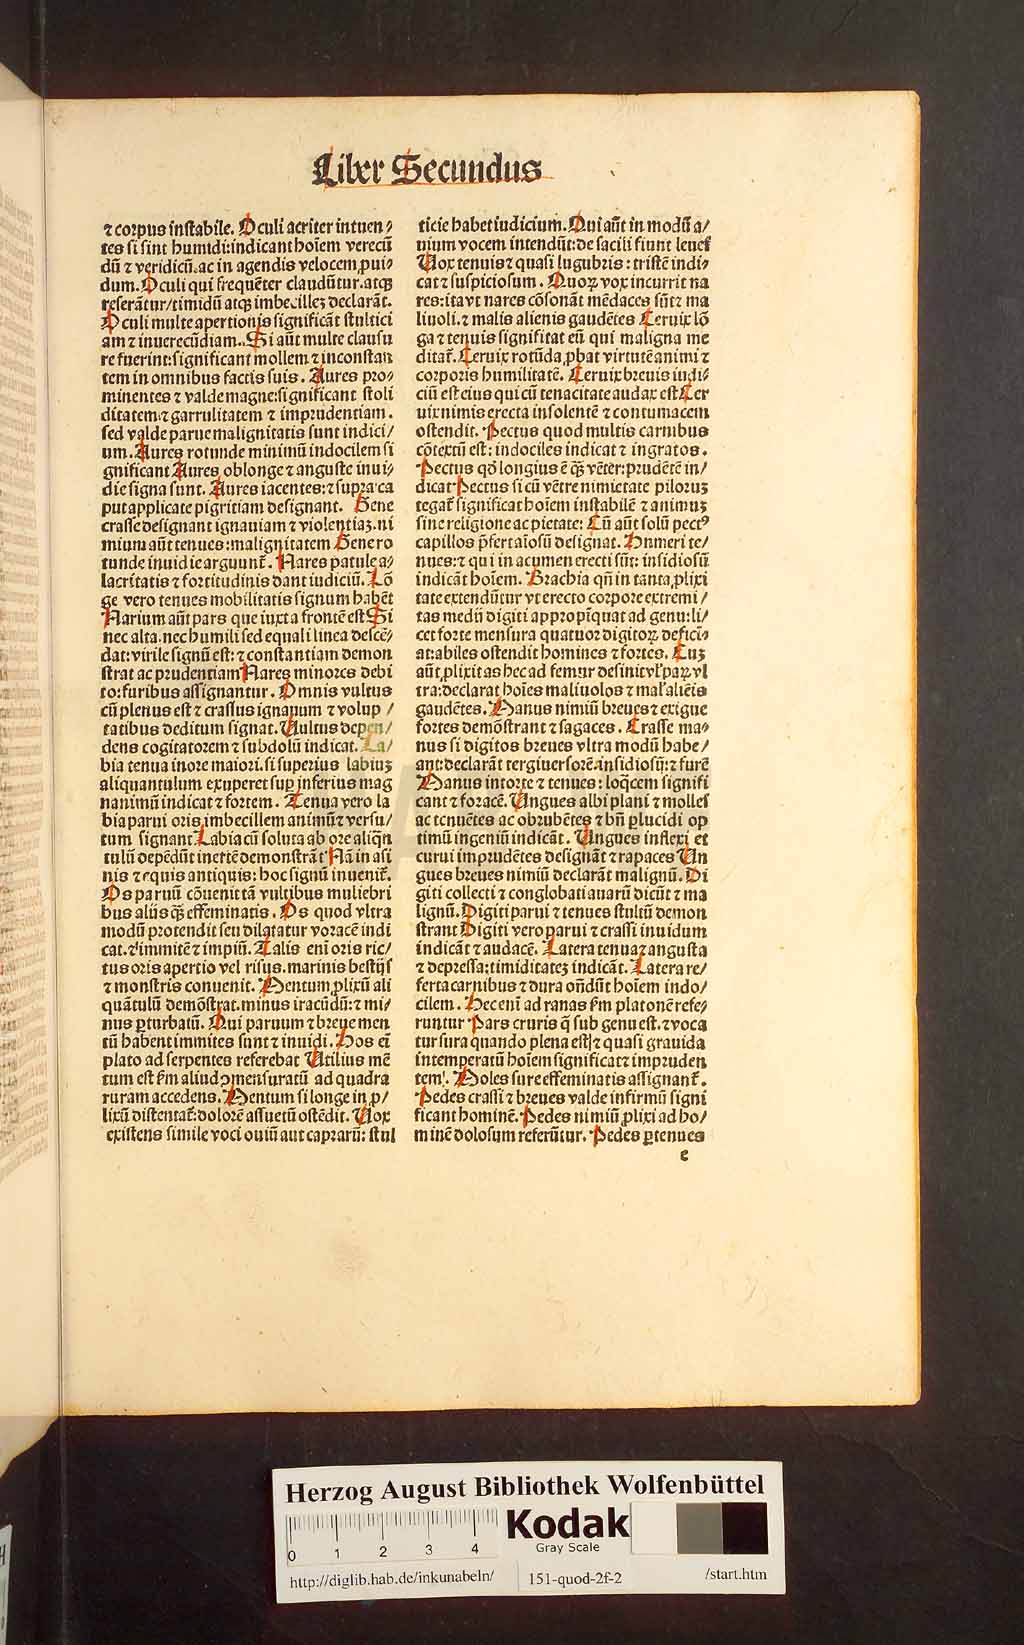 Liber Secundus
⁊ corpus instabile. Oculi acriter intuen⸗
tes si sint humidi: indicant hoīem verecū
dū ⁊ veridicū. ac in agendis velocem, ꝓui⸗
dum. Oculi qui frequēter claudūtur. atqꝫ
reserātur/ timidū atqꝫ imbecilleꝫ declarāt.
Oculi multe apertionis significāt stultici
am ⁊ inuerecūdiam. Si aūt multe clausu
re fuerint: significant mollem ⁊ inconstan
tem in omnibus factis suis. Aures pro⸗
minentes ⁊ valde magne: significant stoli
ditatem ⁊ garrulitatem ⁊ imprudentiam.
sed valde parue malignitatis sunt indici/
um. Aures rotunde minimū indocilem si
gnificant Aures oblonge ⁊ anguste inui⸗
die signa sunt. Aures iacentes: ⁊ supra ca
put applicate pigritiam designant. Gene
crasse designant ignauiam ⁊ violentiaꝫ. ni
mium aūt tenues: malignitatem Gene ro
tunde inuidie arguunt̄. Nares patule a⸗
lacritatis ⁊ fortitudinis dant iudiciū. Lō
ge vero tenues mobilitatis signum habēt
Narium aūt pars que iuxta frontē est Si
nec alta. nec humili sed equali linea descē⸗
dat: virile signū est: ⁊ constantiam demon
strat ac prudentiam Nares minores debi
to: furibus assignantur. Omnis vultus
cū plenus est ⁊ crassus ignauum ⁊ volup /
tatibus deditum signat. Vultus depen/
dens cogitatorem ⁊ subdolū indicat. La/
bia tenua in ore maiori. si superius labiuꝫ
aliquantulum exuperet suꝑ inferius mag
nanimū indicat ⁊ fortem. Tenua vero la
bia parui oris imbecillem animū ⁊ versu/
tum signant Labia cū soluta ab ore aliqn̄
tulū depēdūt inertē demonstrāt Nā in asi
nis ⁊ equis antiquis: hoc signū inuenit̄.
Os paruū cōuenit tā vultibus muliebri
bus aliis qꝫ effeminatis. Os quod vltra
modū protendit seu dilatatur voracē indi
cat. ⁊ immitē ⁊ impiū. Talis enī oris ric/
tus oris apertio vel risus. marinis bestijs
⁊ monstris conuenit. Mentum ꝓlixū ali
quātulū demōstrat. minus iracūdū: ⁊ mi⸗
nus ꝑturbatū. Qui paruum ⁊ breue men
tū habent immites sunt ⁊ inuidi. Hos eī
plato ad serpentes referebat Vtilius mē
tum est ẜm aliud ꝯmensuratū ad quadra
turam accedens. Mentum si longe in ꝓ/
lixū distentat̄: dolorē assuetū ostēdit. Vox
existens simile voci ouiū aut caprarū: stul
ticie habet iudicium. Qui aūt in modū a/
uium vocem intendūt: de facili fiunt leues
Vox tenuis ⁊ quasi lugubris: tristē indi⸗
cat ⁊ suspiciosum. Quoꝝ vox incurrit na
res: ita vt nares cōsonāt mēdaces sūt ⁊ ma
liuoli. ⁊ malis alienis gaudētes Ceruix lō
ga ⁊ tenuis significat eū qui maligna me
ditat̄. Ceruix rotūda ꝓbat virtutē animi ⁊
corporis humilitatē. Ceruix breuis iudi⸗
ciū est eius qui cū tenacitate audax est Cer
uix nimis erecta insolentē ⁊ contumacem
ostendit. Pectus quod multis carnibus
cōtextū est: indociles indicat ⁊ ingratos.
Pectus qd̄ longius ē qꝫ vēter: prudētē in/
dicat Pectus si cū vētre nimietate piloruꝫ
tegat̄ significat hoīem instabilē ⁊ animuꝫ
sine religione ac pietate: Cū aūt solū pectꝰ
capillos p̄fert aīosū designat. Humeri te/
nues: ⁊ qui in acumen erecti sūt: insidiosū
indicāt hoīem. Brachia qn̄ in tanta ꝓlixi
tate extendūtur vt erecto corpore extremi/
tas medij digiti appropīquat ad genu: li/
cet forte mensura quatuor digitoꝝ defici⸗
at: abiles ostendit homines ⁊ fortes. Cuꝫ
aūt ꝓlixitas hec ad femur desinit vl̓ paꝝ vl
tra: declarat hoīes maliuolos ⁊ mal̓ aliēis
gaudētes. Manus nimiū breues ⁊ exigue
fortes demōstrant ⁊ sagaces. Crasse ma⸗
nus si digitos breues vltra modū habe/
ant: declarāt tergiuersorē. insidiosū: ⁊ furē
Manus intorte ⁊ tenues: loq̄cem signifi
cant ⁊ foracē. Vngues albi plani ⁊ molles
ac tenuētes ac obrubētes ⁊ bn̄ plucidi op
timū ingeniū indicāt. Vngues inflexi et
curui imprudētes designāt ⁊ rapaces Vn
gues breues nimiū declarāt malignū. Di
giti collecti ⁊ conglobati auarū dicūt ⁊ ma
lignū. Digiti parui ⁊ tenues stultū demon
strant Digiti vero parui ⁊ crassi inuidum
indicāt ⁊ audacē. Latera tenua ⁊ angusta
⁊ depressa: timiditateꝫ indicāt. Latera re/
ferta carnibus ⁊ dura on̄dūt hoīem indo/
cilem. Hec enī ad ranas ẜm platonē refe⸗
runtur Pars cruris q̄ sub genu est. ⁊ voca
tur sura quando plena est ⁊ quasi grauida
intemperatū hoīem significat ⁊ impruden
tem. Moles sure effeminatis assignant̄.
Pedes crassi ⁊ breues valde infirmū signi
ficant hominē. Pedes nimiū ꝓlixi ad ho/
minē dolosum referūtur. Pedes ꝑtenues
e
Herzog August Bibliothek Wolfenbüttel
Kodak
Gray Scale
0 1 2 3 4
http://diglib.hab.de/inkunabeln/ 151-quod-2f-2 /start.htm